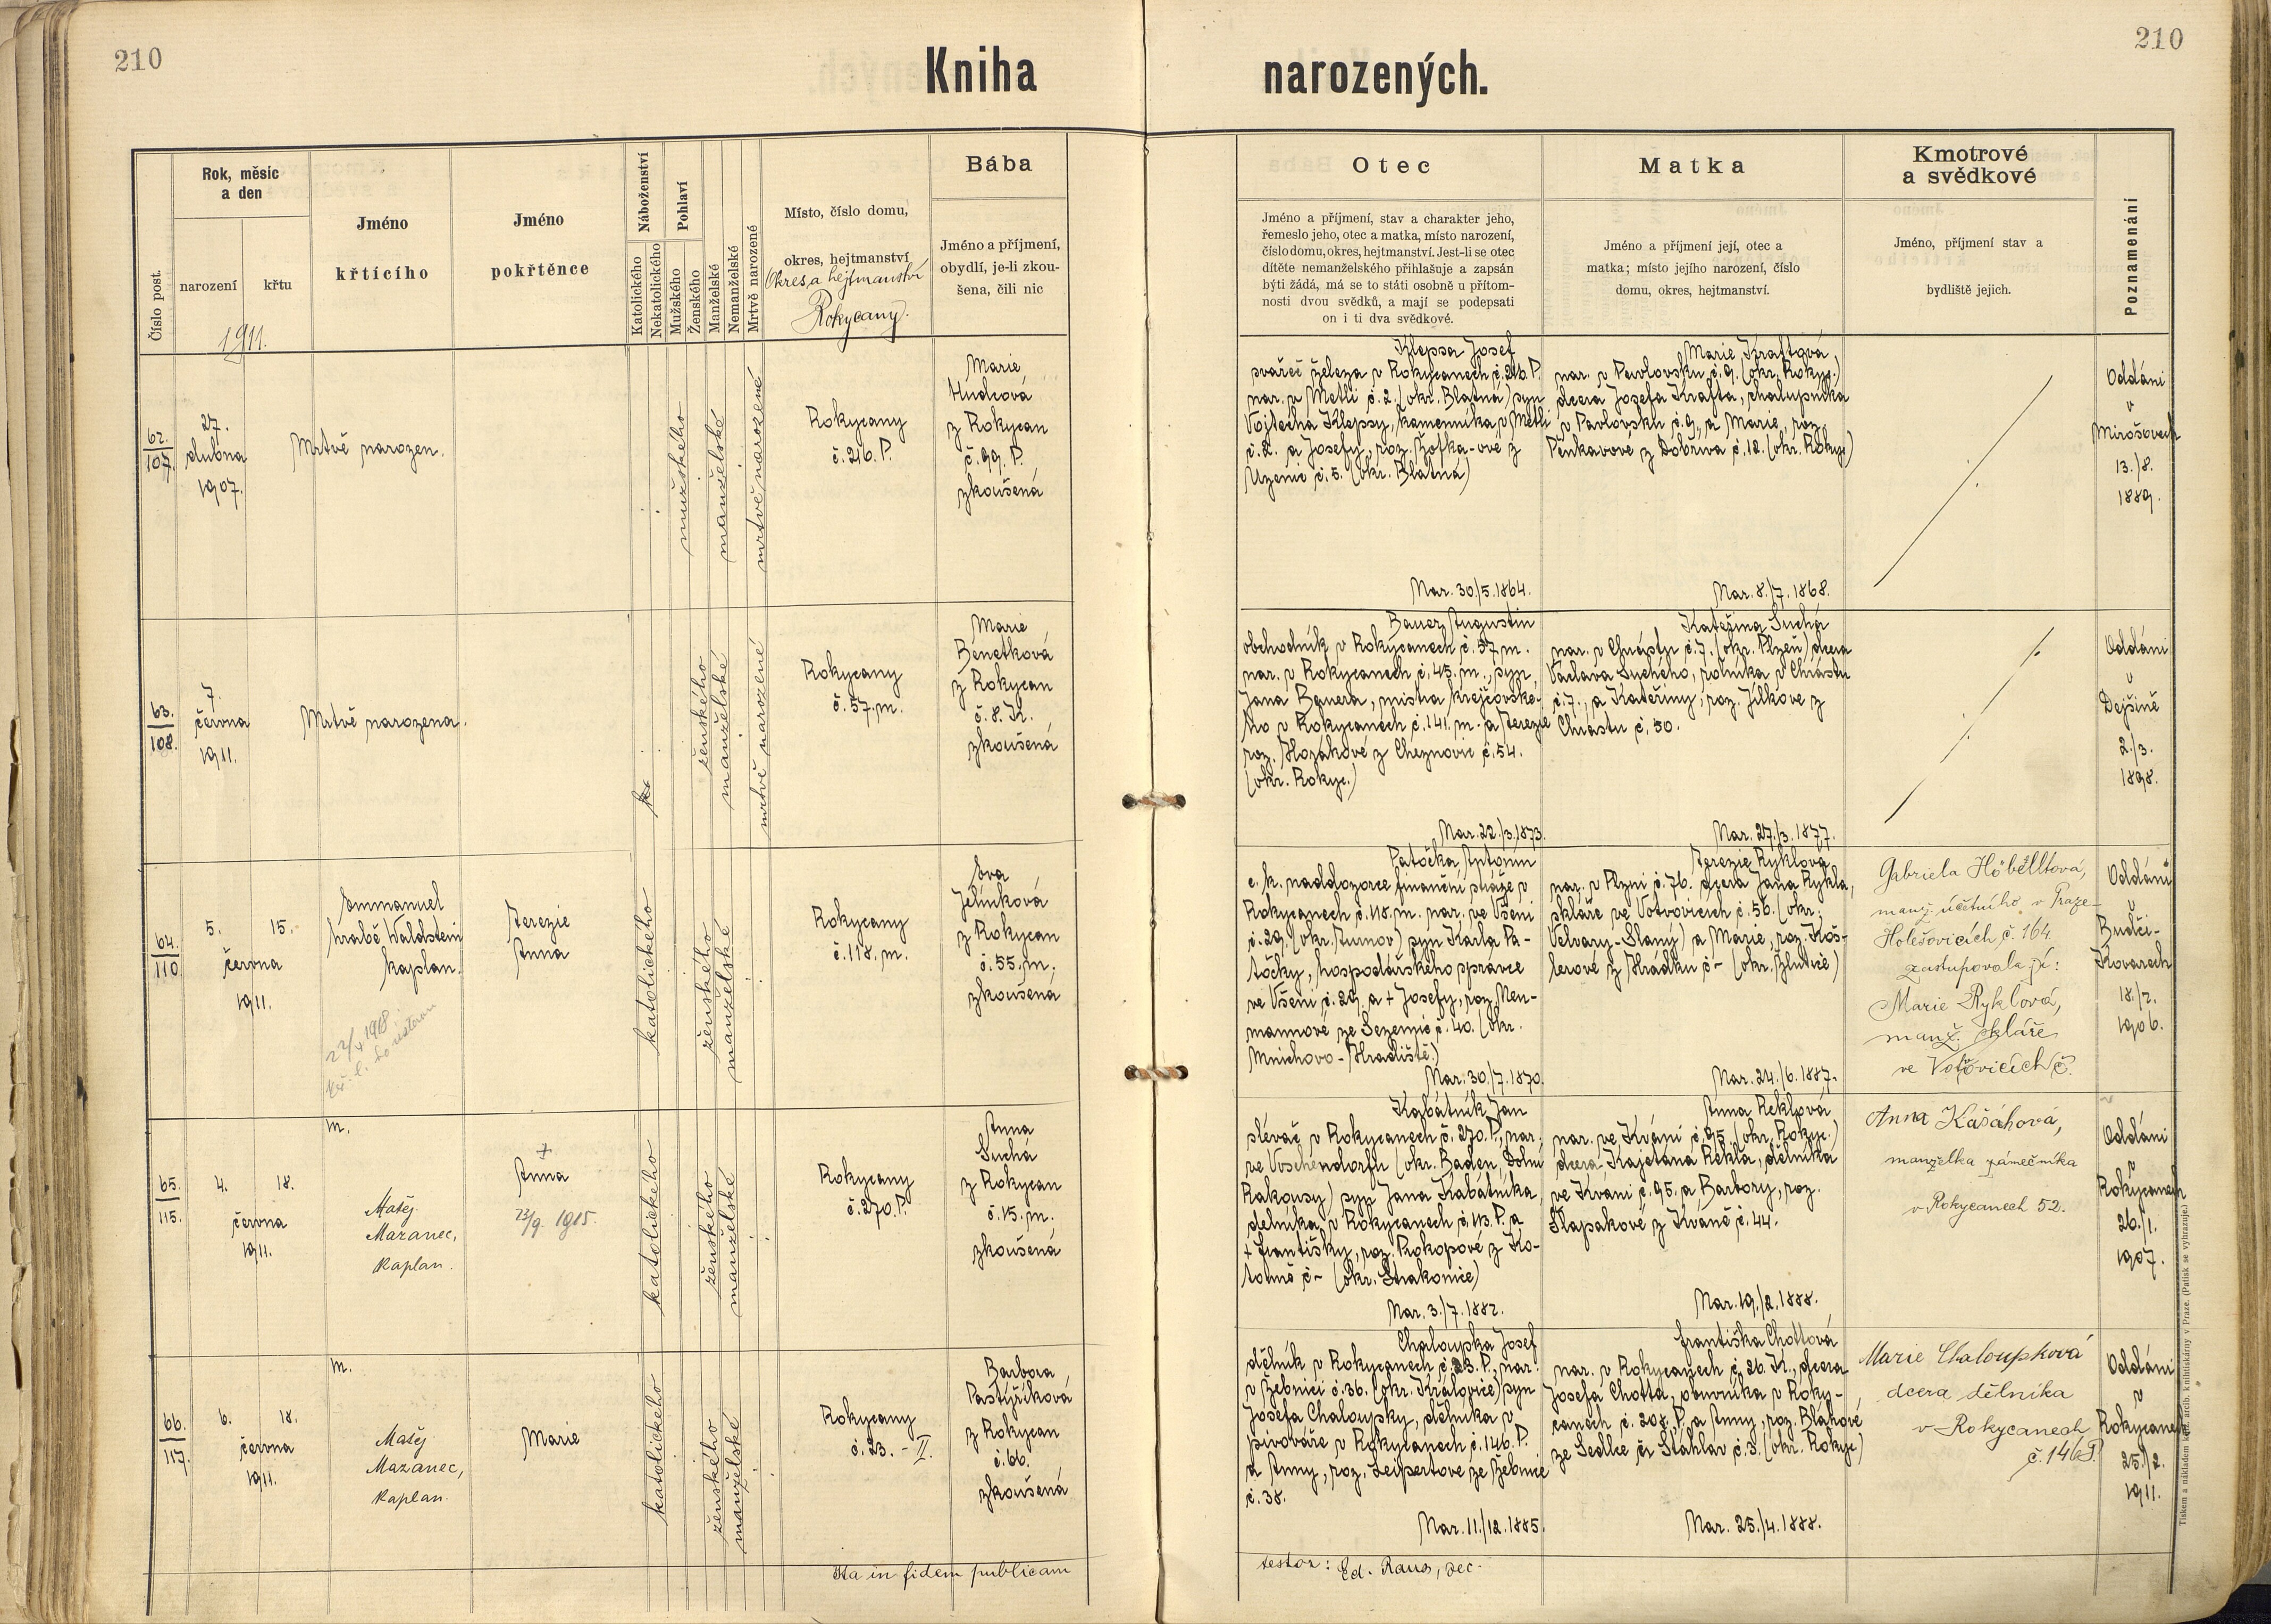 210
Kniha
narozených.
210
Číslo post.
Rok, měsíc
a den
narození
křtu
1911.
Jméno
křtícího
Jméno
pokřtěnce
Náboženství
Katolického
Nekatolického
Pohlaví
Mužského
Ženského
Manželské
Nemanželské
Mrtvě narozené
Místo, číslo domu,
okres, hejtmanství
Okres a hejtmanství
Rokycany.
Bába
Jméno a příjmení,
obydlí, je-li zkou-
šena, čili nic
Otec
Jméno a příjmení, stav a charakter jeho,
řemeslo jeho, otec a matka, místo narození,
číslo domu, okres, hejtmanství. Jest-li se otec
dítěte nemanželského přihlašuje a zapsán
býti žádá, má se to státi osobně u přítom-
nosti dvou svědků, a mají se podepsati
on i ti dva svědkové.
Matka
Jméno a příjmení její, otec a
matka; místo jejího narození, číslo
domu, okres, hejtmanství.
Kmotrové
a svědkové
Jméno, příjmení stav a
bydliště jejich.
Poznamenání
62.
107.
27.
dubna
1907.
Mrtvě narozen.
mužského
manželské
mrtvě narozené
Rokycany
č. 216. P.
Marie
Hudcová
z Rokycan
č. 99. P.
zkoušená
Klepsa Josef
svářeč železa v Rokycanech č. 216. P.
nar. v Metli č. 2. (okr. Blatná) syn
Vojtěcha Klepsy, kamenníka v Metli
č. 2. a Josefy, roz. Žofka-ové z
Uzenic č. 5. (okr. Blatná)
Nar. 30/5. 1864.
Marie Kraftová
nar. v Pavlovsku č. 9. (okr. Rokyc.)
dcera Josefa Krafta, chalupníka
v Pavlovsku č. 9., a Marie, roz.
Pěnkavové z Dobřiva č. 12. (okr. Rokyc)
Nar. 8./7. 1868.
Oddáni
v
Mirošovech
13./8.
1889.
63.
108.
7.
června
1911.
Mrtvě narozena.
ženského
manželské
mrtvě narozené
Rokycany
č. 57. m.
Marie
Benetková
z Rokycan
č. 8. K.
zkoušená
Bauer Augustin
obchodník v Rokycanech č. 57 m.
nar. v Rokycanech č. 45. m., syn
Jana Bauera, mistra krejčovské-
ho v Rokycanech č. 141. m. a Terezie
roz. Horákové z Cheznovic č. 54.
(okr. Rokyc.)
Nar. 22./3. 1873.
Kateřina Suchá
nar. v Chrástu č. 7. (okr. Plzeň) dcera
Václava Suchého, rolníka v Chrástu
č. 7., a Kateřiny, roz. Jílkove z
Chrástu č. 50.
Nar. 27./3. 1877.
Oddáni
v
Dejšině
2./3.
1898.
64.
110.
5. 15.
června
1911.
Emmanuel
hrabě Waldstein
kaplan.
22/4 1918
Terezie
Anna
katolického
ženského
manželské
Rokycany
č. 118. m.
Eva
Jelínková
z Rokycan
č. 55. m.
zkoušená
Patočka Antonín
c. k. naddozorce finanční stráže v
Rokycanech č. 118. m. nar. ve Všeni
č. 29. (okr. Turnov) syn Karla Pa-
točky, hospodářského správce
ve Všeni č. 29. a + Josefy, roz. Men-
mannové ze Sezemic č. 40. (okr.
Mnichovo-Hradiště.)
Nar. 30./7. 1870.
Terezie Ryklová
nar. v Plzni č. 76. dcera Jana Rykla,
skláře ve Votvovicích č. 56. (okr.
Velvary-Slaný) a Marie, roz. Koš-
lerové z Hrádku č - (okr. Žlutice)
Nar. 24./6. 1887.
Gabriela Höbelltová,
manž. účetního v Praze-
Holešovicích č. 164
zastupovala ji:
Marie Ryklová,
manž. skláře
ve Votvovicích č.
Oddáni
v
Budči-
Kovarech
18./7.
1906.
65.
115.
4. 18.
června
1911.
m.
Matěj
Mazanec,
kaplan.
+
Anna
23/9. 1915.
katolického
ženského
manželské
Rokycany
č. 270. P.
Anna
Suchá
z Rokycan
č. 15. m.
zkoušená
Kabátník Jan
slévač v Rokycanech č. 270. P., nar.
ve Voschendorfu (okr. Baden, Dolní
Rakousy) syn Jana Kabátníka,
dělníka v Rokycanech č. 113. P. a
+ Františky, roz. Prokopové z Ko-
tolné č - (okr. Strakonice)
Nar. 3./7. 1882.
Anna Reklová
nar. ve Kváni č. 95. (okr. Rokyc.)
dcera Kajetana Rekla, dělníka
ve Kváni č. 95. a Barbory, roz.
Šlapákové z Kváně č. 44.
Nar. 19./2. 1888.
Anna Kašáková,
manželka zámečníka
v Rokycanech 52.
Oddáni
v
Rokycanech
26./1.
1907.
66.
117.
6. 18.
června
1911.
m.
Matěj
Mazanec,
kaplan.
Marie
katolického
ženského
manželské
Rokycany
č. 23. - II.
Barbora
Pastýříková
z Rokycan
č. 66.
zkoušená
Chaloupka Josef
dělník v Rokycanech č. 23. P., nar.
v Žebnici č. 36. (okr. Kralovice) syn
Josefa Chaloupky, dělníka v
pivováře v Rokycanech č. 146. P.
a Anny, roz. Leipertove ze Žebnice
č. 38.
Nar. 11./12. 1885.
Františka Chottová
nar. v Rokycanech č. 26. K., dcera
Josefa Chotta, obuvníka v Roky-
canech č. 208. P. a Anny, roz. Bláhové
ze Sedlce čs Stáhlav č. 3. (okr. Rokyc)
Nar. 25./4. 1888.
Marie Chaloupková
dcera dělníka
v Rokycanech
č. 146 P.
Oddáni
v
Rokycanech
25./2.
1911.
Ita in fidem publicam
testor: Ed. Raus, dec.